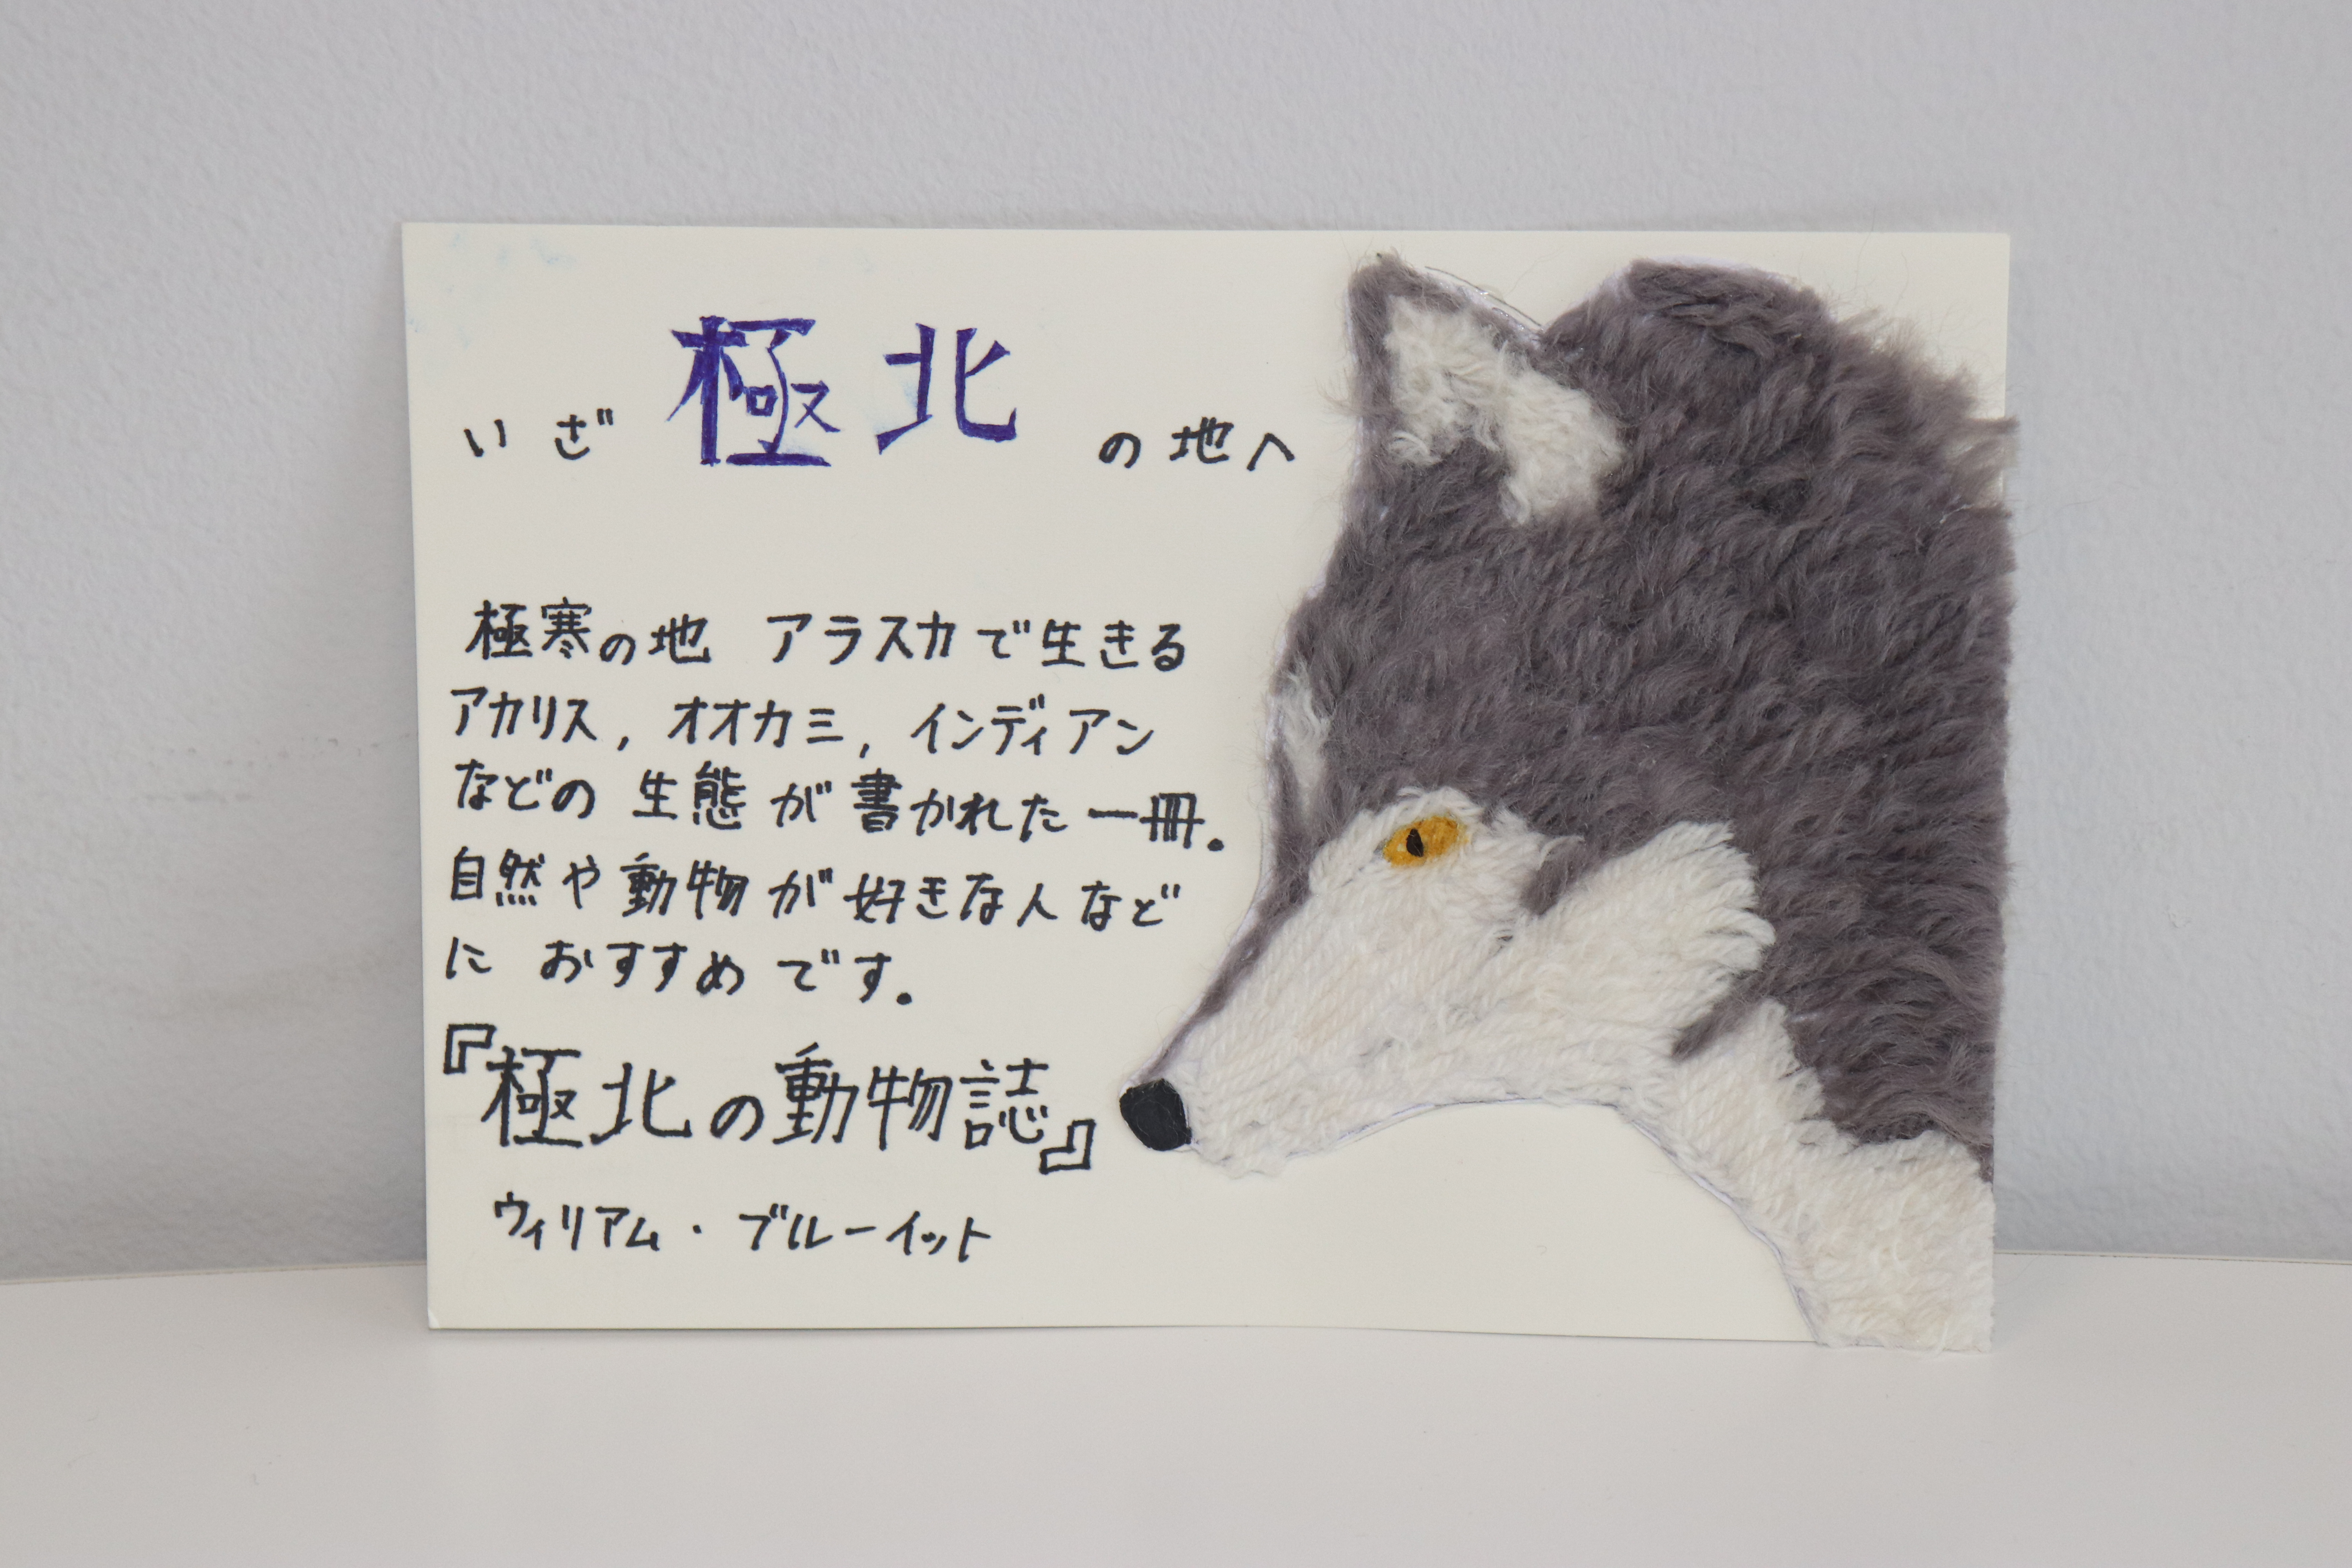 いざ 極北 の地へ
極寒の地 アラスカで生きる
アカリス, オオカミ, インディアン
などの 生態が書かれた一冊。
自然や動物が好きな人など
に おすすめです。
『極北の動物誌』
ウィリアム・ブルーイット